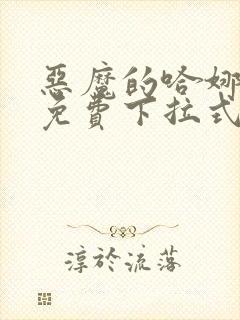 惡魔的哈娜
免費下拉式
淳於流落